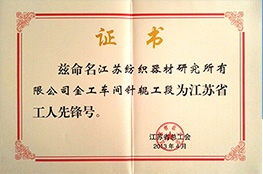 证书
兹命名江苏纺织器材研究所有
限公司金工车间针辊工段为江苏省
工人先锋号。
江苏省总工会
2013年4月